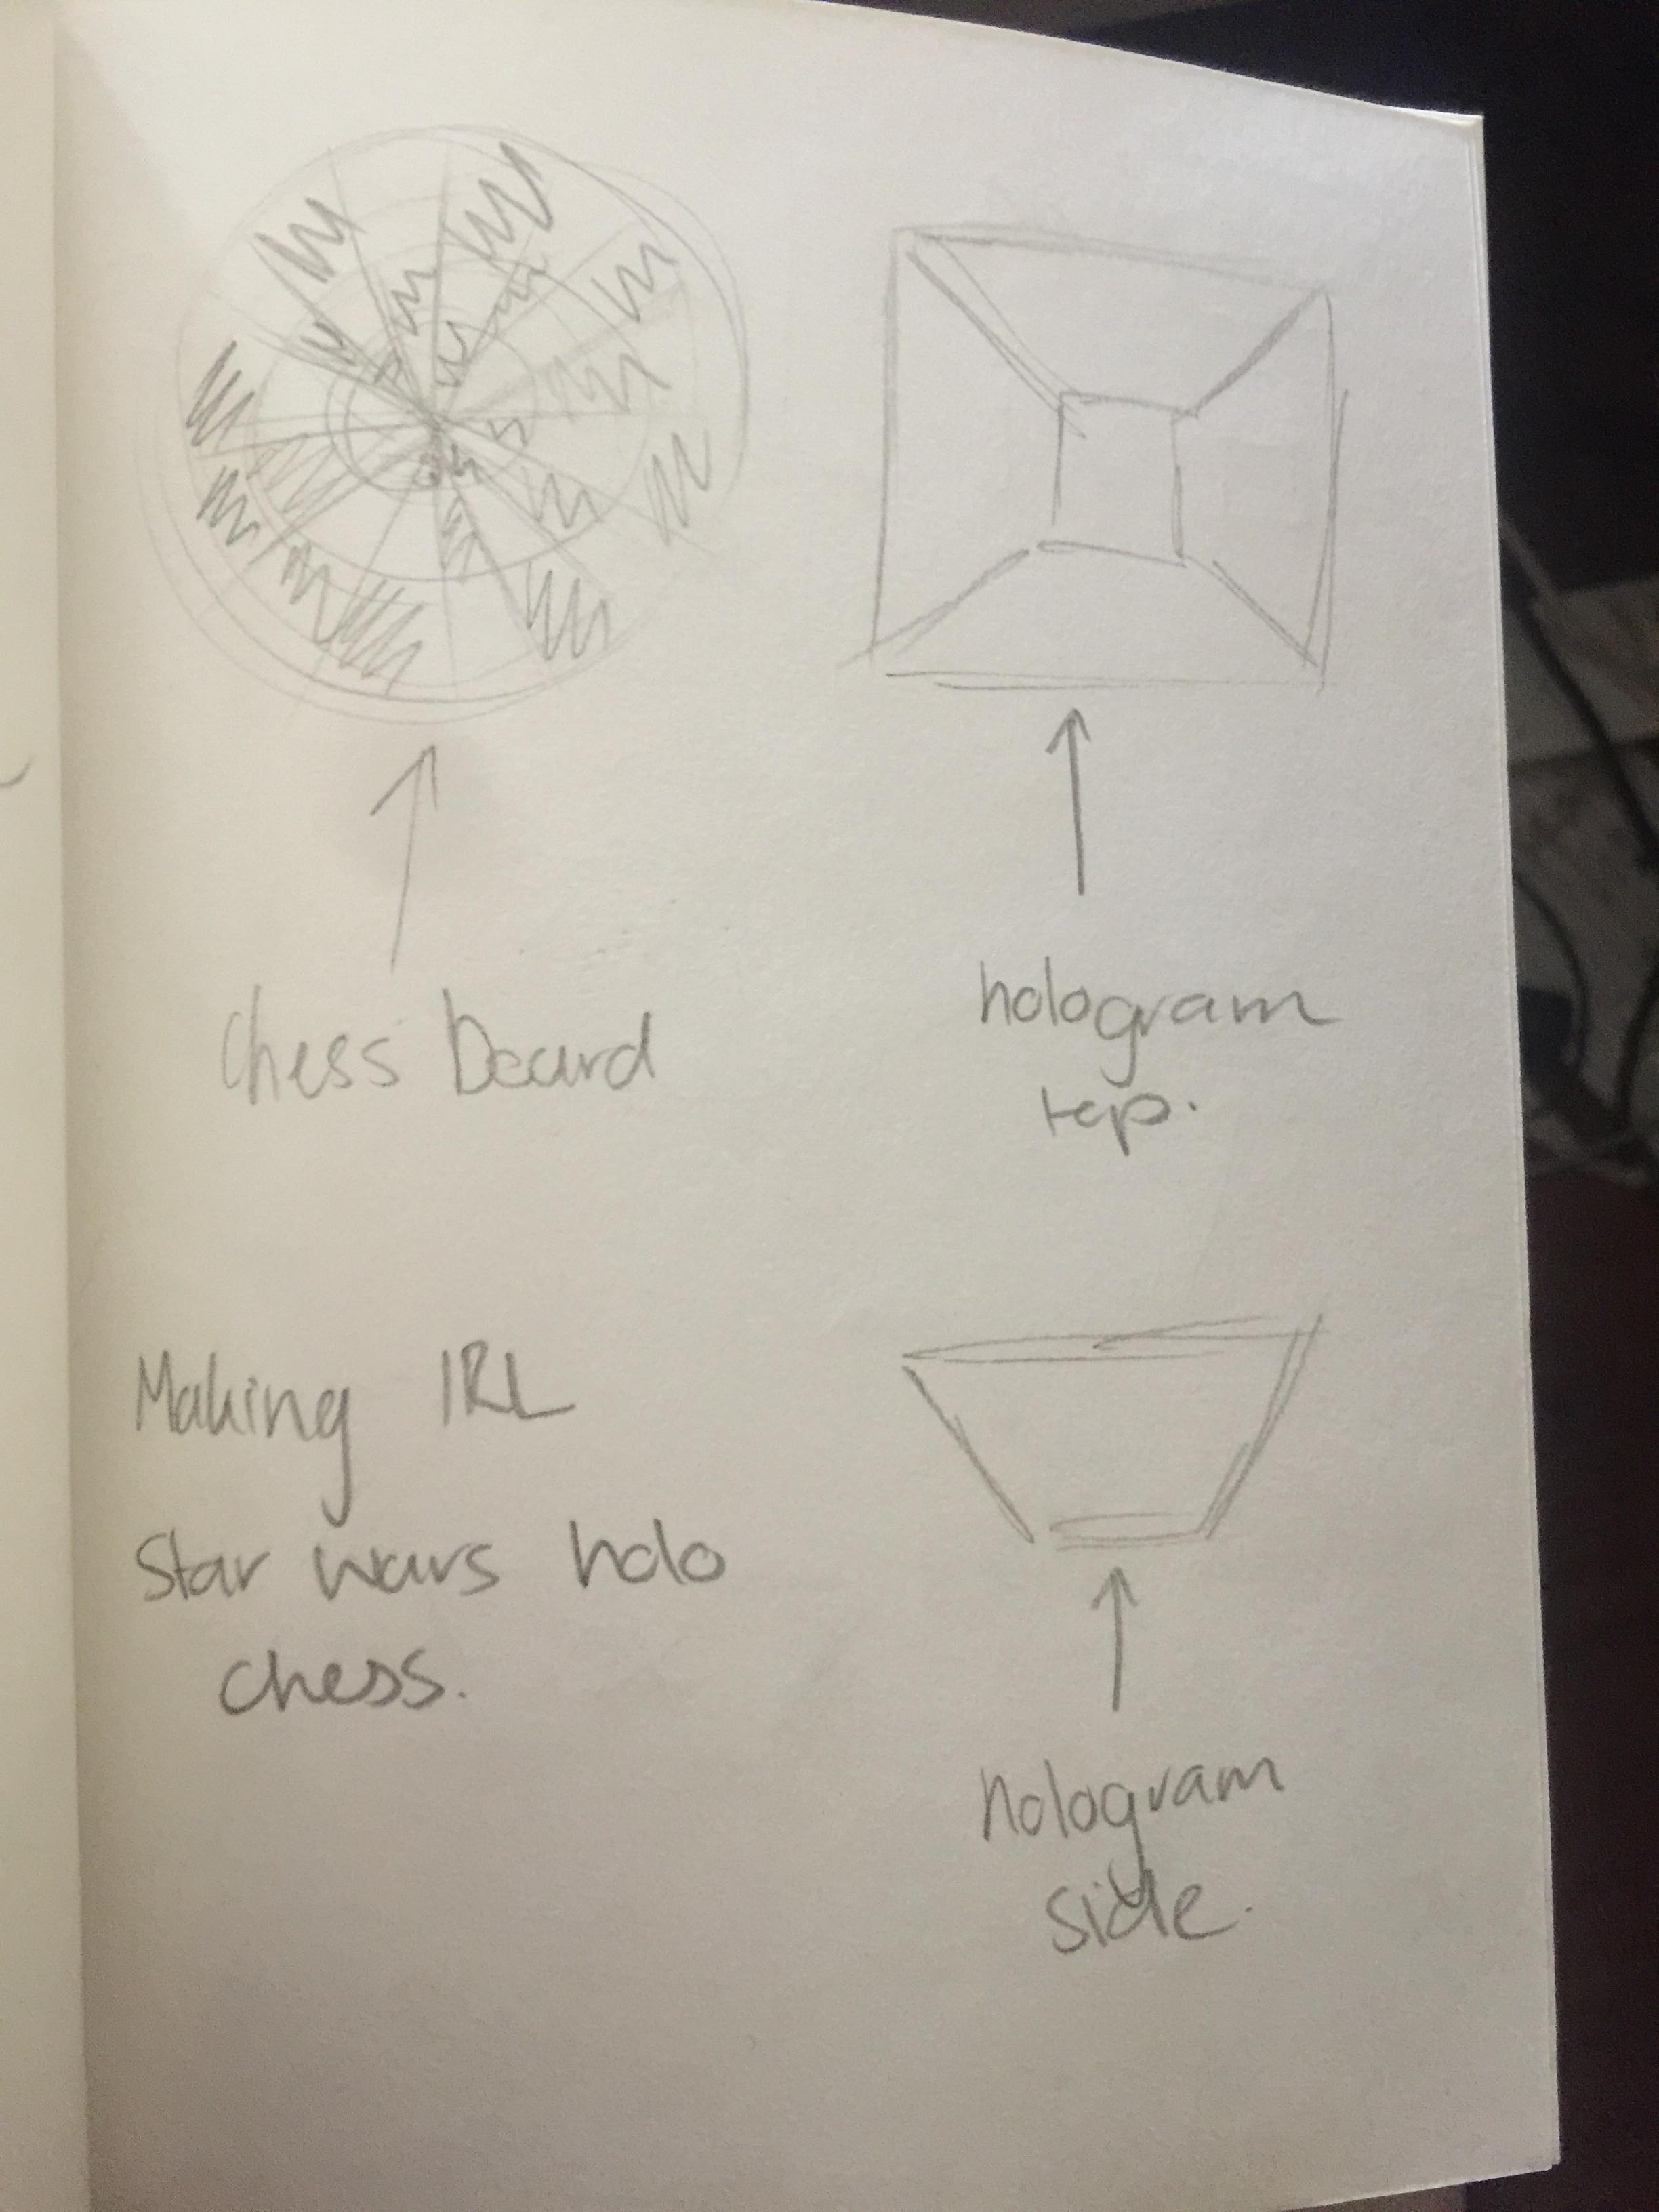 Chess board
hologram
top.
Making IRL
Star wars holo
chess.
hologram
side.